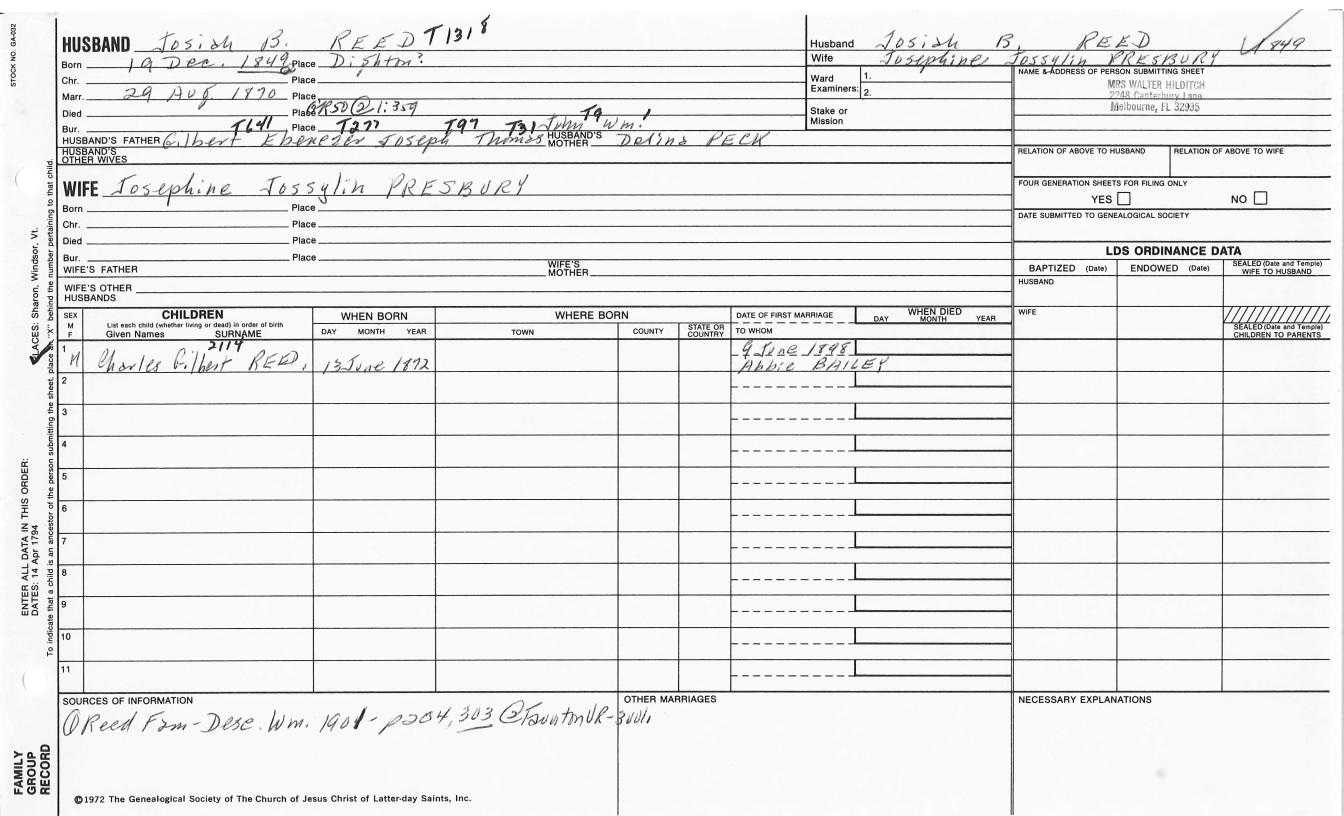 STOCK NO. GA-032
HUSBAND Josiah B. REED T1318
Born 19 Dec. 1849 Place Dighton?
Chr. Place
Marr. 29 Aug 1870 Place
Died Place GR50 @ 1:359
Bur. T641 Place T277 T97 T31 T9
HUSBAND'S FATHER Gilbert Ebenezer Joseph Thomas John Wm.1 HUSBAND'S MOTHER Delina PECK
HUSBAND'S OTHER WIVES
WIFE Josephine Jossylin PRESBURY
Born Place
Chr. Place
Died Place
Bur. Place
WIFE'S FATHER WIFE'S MOTHER
WIFE'S OTHER HUSBANDS
Husband Josiah B. REED 1849
Wife Josephine Jossylin PRESBURY
Ward Examiners: 1.
2.
Stake or Mission
NAME & ADDRESS OF PERSON SUBMITTING SHEET
MRS WALTER HILDITCH
2248 Canterbury Lane
Melbourne, FL 32935
RELATION OF ABOVE TO HUSBAND RELATION OF ABOVE TO WIFE
FOUR GENERATION SHEETS FOR FILING ONLY
YES NO
DATE SUBMITTED TO GENEALOGICAL SOCIETY
LDS ORDINANCE DATA
BAPTIZED (Date) ENDOWED (Date) SEALED (Date and Temple) WIFE TO HUSBAND
HUSBAND
WIFE
SEALED (Date and Temple) CHILDREN TO PARENTS
SEX M F
CHILDREN
List each child (whether living or dead) in order of birth
Given Names SURNAME
WHEN BORN
DAY MONTH YEAR
WHERE BORN
TOWN COUNTY STATE OR COUNTRY
DATE OF FIRST MARRIAGE
TO WHOM
WHEN DIED
DAY MONTH YEAR
2114
1 M Charles Gilbert REED, 13 June 1872 9 June 1898
Abbie BAILEY
2
3
4
5
6
7
8
9
10
11
SOURCES OF INFORMATION
① Reed Fam-Desc. Wm. 1901 - p204, 303 @ Taunton VR-
OTHER MARRIAGES
NECESSARY EXPLANATIONS
©1972 The Genealogical Society of The Church of Jesus Christ of Latter-day Saints, Inc.
FAMILY GROUP RECORD
ENTER ALL DATA IN THIS ORDER:
DATES: 14 Apr 1794
PLACES: Sharon, Windsor, Vt.
To indicate that a child is an ancestor of the person submitting the sheet, place an "X" behind the number pertaining to that child.